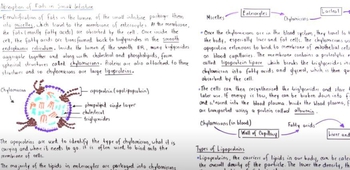 Absorption of Fats in Small Intestine
Emulsification of fats in the lumen of the small intestine packages them
into micelles, which travel to the membrane of enterocytes. At the membrane,
the fats (mostly fatty acids) are absorbed by the cell. Once inside the
cell, the fatty acids are transformed back to triglycerides in the smooth
endoplasmic reticulum. Inside the lumen of the smooth ER, many triglycerides
aggregate together and along with cholesterol and phospholipids, form
spherical structures called chylomicrons. Proteins are also attached to they
structure and so chylomicrons are large lipoproteins.
Chylomicron
apoprotein (apolipoprotein)
phospholipid single layer
cholesterol
triglycerides
The apoproteins are used to identify the type of chylomicron, what it is
carrying and where it needs to go. It is often used to bind onto the
membrane of cells.
The majority of the lipids in enterocytes are packaged into chylomicrons
Micelles
Enterocytes
Chylomicrons
Lacteal
Once the chylomicrons are in the blood system, they travel to
the body, especially liver and fat cells. The chylomicrons use
apoprotein extensions to bind to membrane of endothelial cells
on blood capillaries. The membrane contains a protein
called lipoprotein lipase which breaks the triglycerides in
chylomicrons into fatty acids and glycerol, which is then
absorbed by the cell.
The cells can then resynthesized the triglycerides and store
later use. If energy is low, they can be broken down into
and released into the blood plasma. Inside the blood plasma,
are transported using a protein called albumin.
Chylomicrons (in blood)
Wall of Capillary
Fatty acids
Liver and
Types of Lipoproteins
Lipoproteins, the carriers of lipids in our body, can be
the overall density of the particle. The lower the density, th